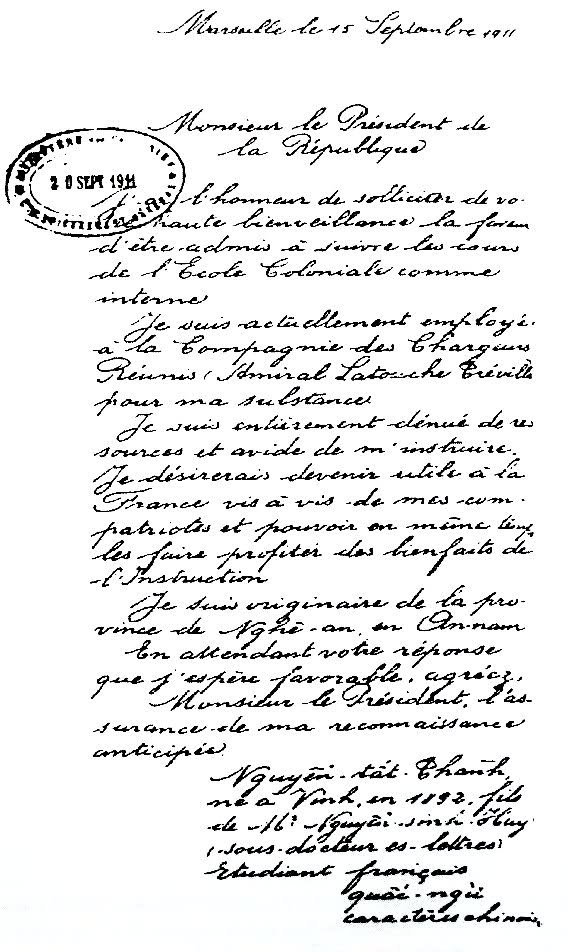 Marseille le 15 Septembre 1911
Monsieur le Président de
la République
20 SEPT 1911
J' l'honneur de solliciter de vo-
haute bienveillance la faveur
d'être admis à suivre les cours
de l'Ecole Coloniale comme
interne
Je suis actuellement employé
à la Compagnie des Chargeurs
Réunis (Amiral Latouche Tréville
pour ma substance
Je suis entièrement dénué de res
sources et avide de m'instruire.
Je désirerais devenir utile à la
France vis à vis de mes com-
patriotes et pouvoir en même temps
les faire profiter des bienfaits de
l'Instruction
Je suis originaire de la pro-
vince de Nghê-an, en Annam
En attendant votre réponse
que j'espère favorable, agréez,
Monsieur le Président, l'as-
surance de ma reconnaissance
anticipée
Nguyên-tât-Thanh,
né à Vinh, en 1892, fils
de Mr Nguyên-sinh-Huy
(sous-docteur ès-lettres)
Etudiant français
quâc-ngu
caractères chinois